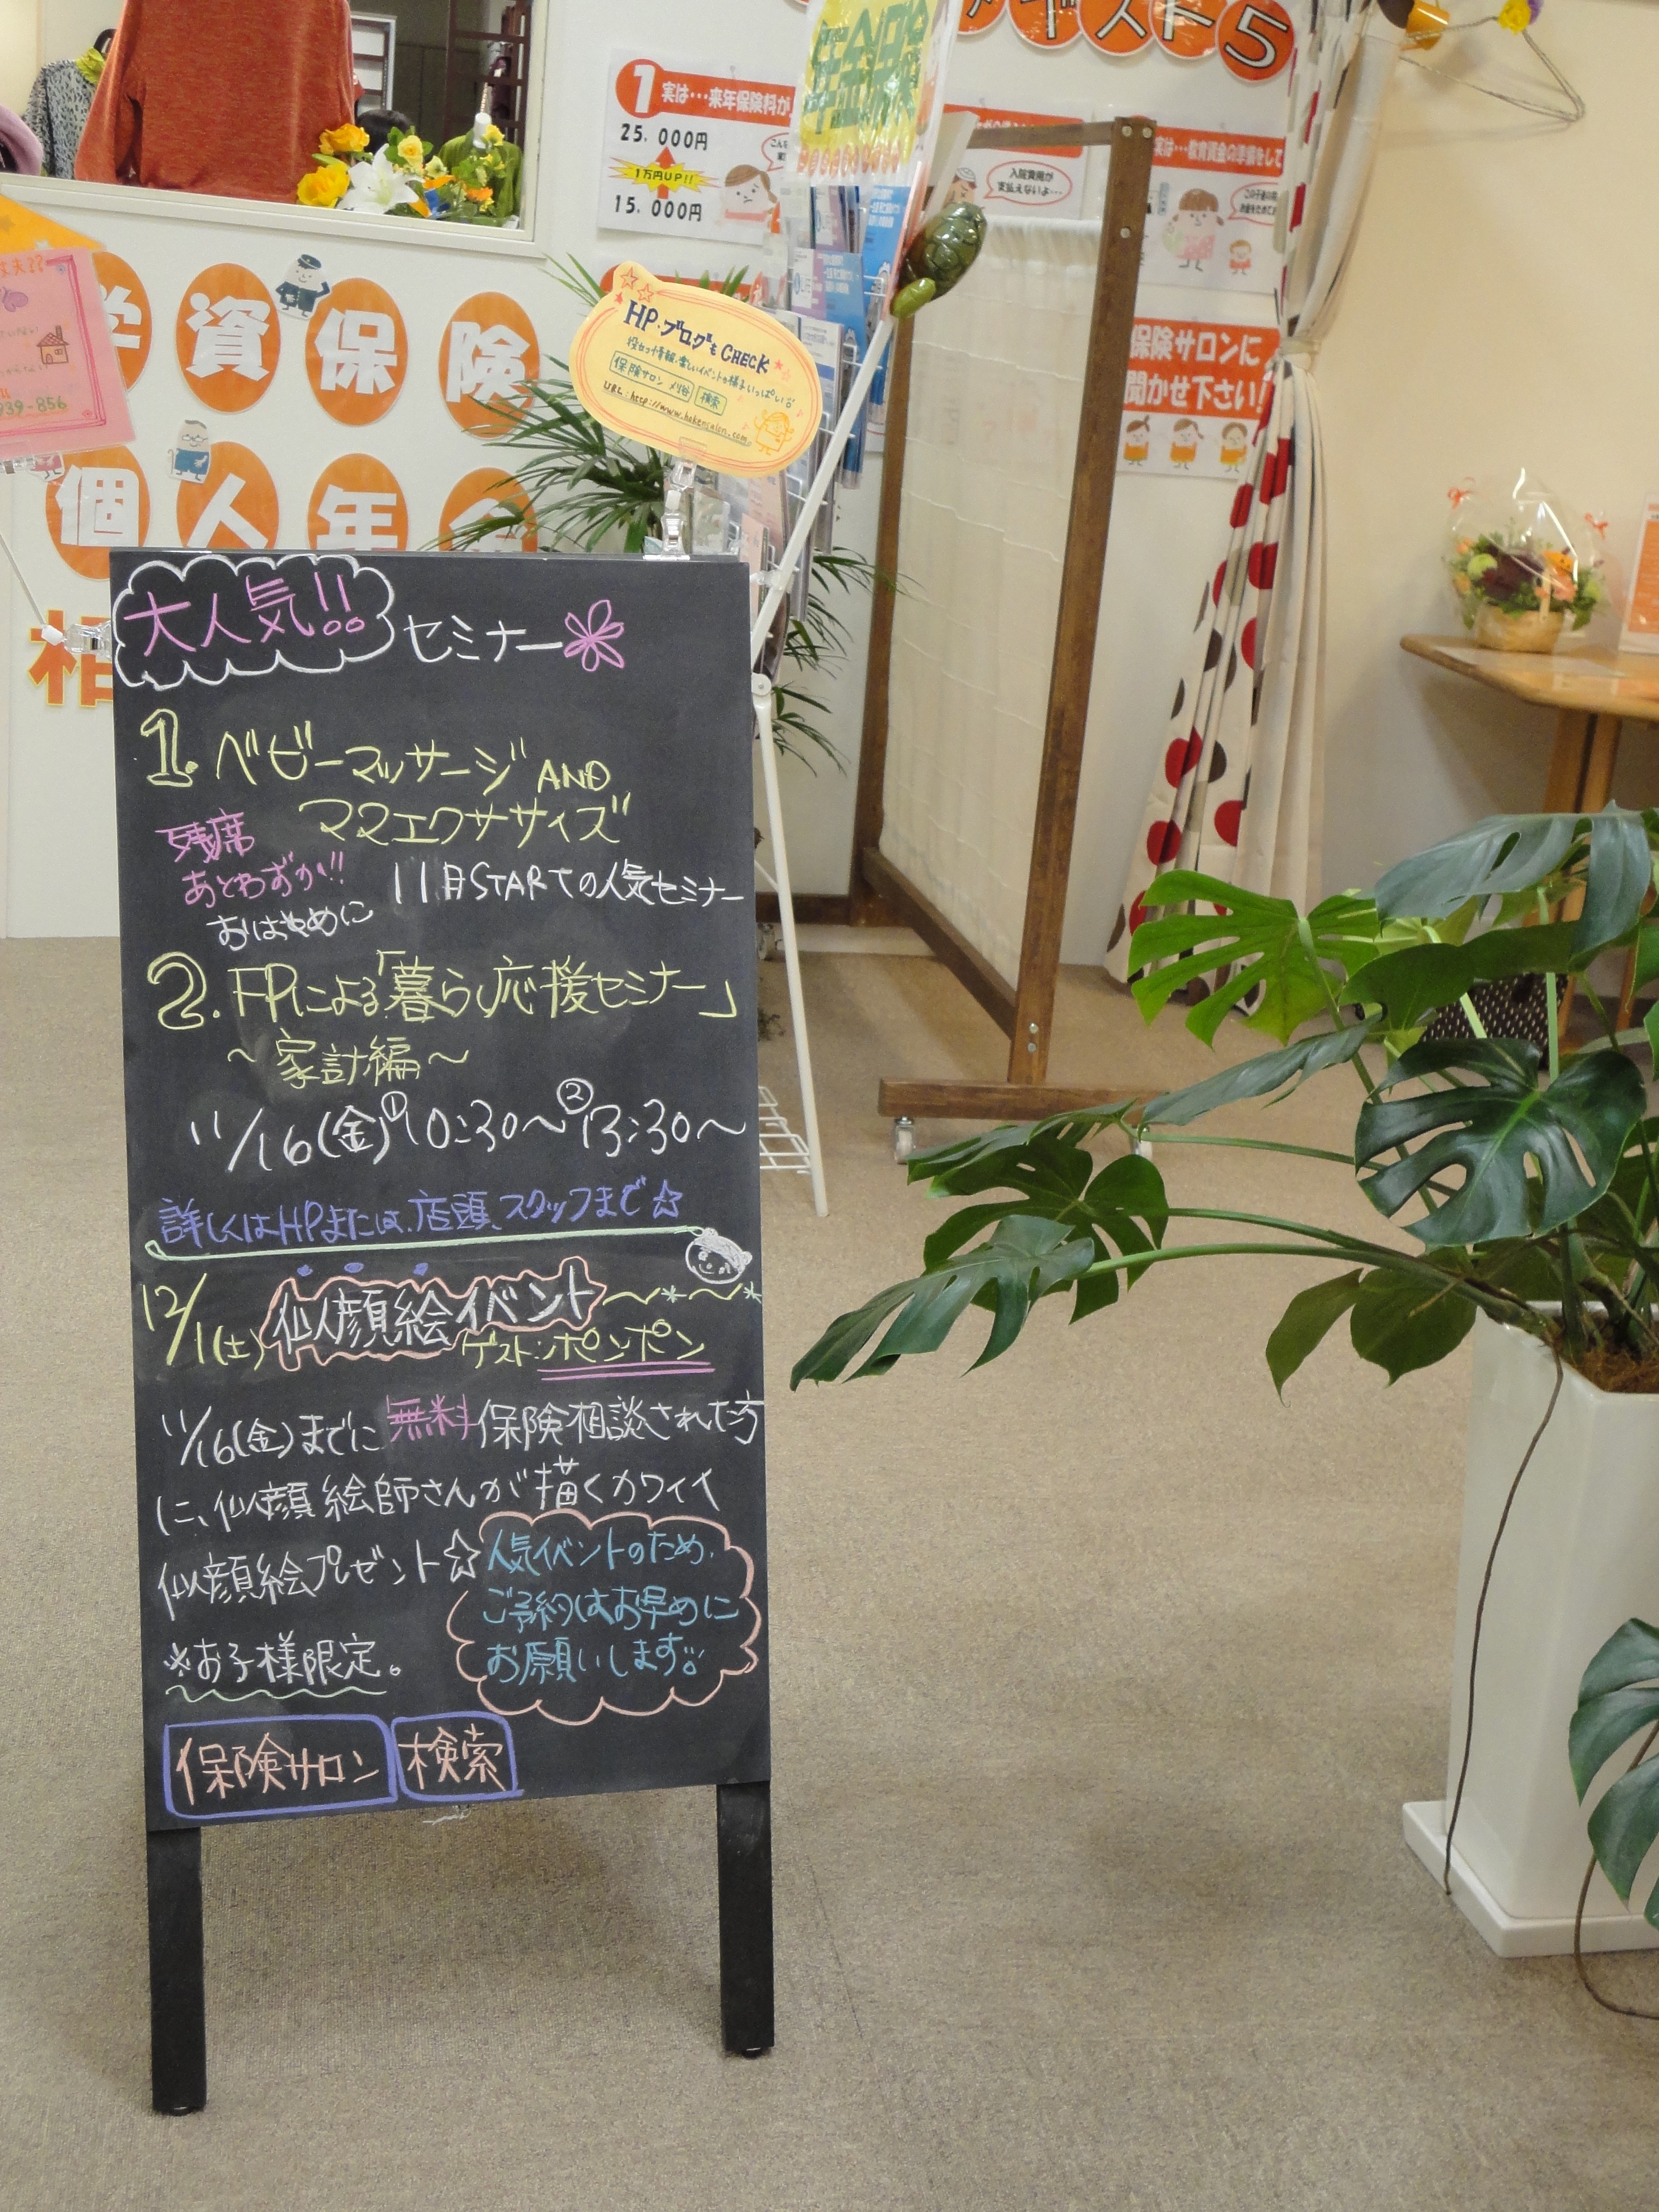 スト5
年金保険
1 実は…来年保険料が
25,000円
1万円UP!!
15,000円
入院費用が
支払えないよ…
実は…教育資金の準備をして
保険サロンに
聞かせ下さい!
資保険
個人年
939-856
HP・ブログも CHECK
役立つ情報、楽しいイベントの様子いっぱい
保険サロン 刈谷 検索
URL:http://www.hokensalon.com
大人気!! セミナー
1. ベビーマッサージ AND
ママエクササイズ
残席
あとわずか!!
11月STARTの人気セミナー
おはやめに
2. FPによる「暮らし応援セミナー」
～家計編～
11/16(金)①10:30～②13:30～
詳しくはHPまたは、店頭、スタッフまで☆
12/1(土) 似顔絵イベント
ゲスト:ポンポン
11/16(金)までに無料保険相談された方
に、似顔絵師さんが描くカワイイ
似顔絵プレゼント☆
人気イベントのため、
ご予約はお早めに
お願いします。
※お子様限定。
保険サロン 検索